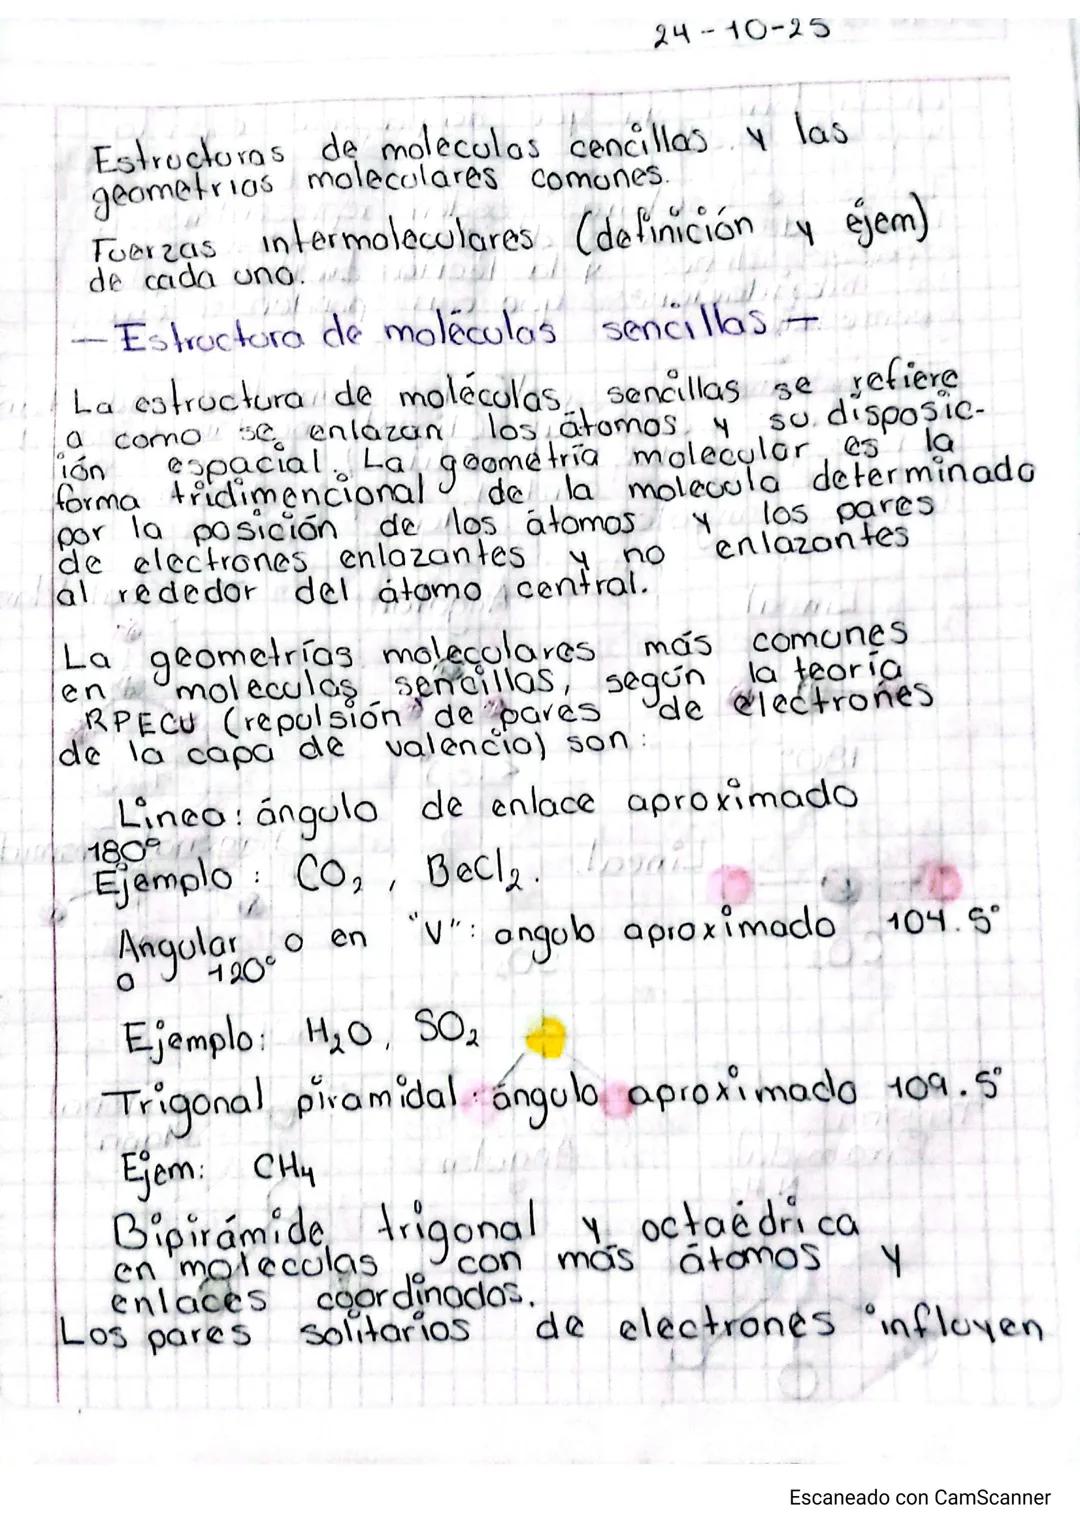 24-10-25
Estructuras de moleculas cencillas y las
geometrias moleculares comunes.
Fuerzas intermoleculares (definición y ejem)
de cada uno.
- Estructura de moléculas sencillas -
La estructura de moléculas sencillas se refiere
a como se enlazan los átomos y su disposic-
ión espacial. La geometría molecular es la
forma tridimencional de la molecula determinado
por la posición de los átomos y los pares
de electrones enlazantes y no enlazantes
al rededor del átomo central.
La geometrías moleculares más comunes
en moleculas sencillas, según la teoría
RPECV (repulsión de pares de electrones
de la capa de valencia) son:
Linea: ángulo de enlace aproximado
180°
Ejemplo: CO₂, BeCl₂.
Angular o en "V": angulo aproximado 104.5°
o 120°
Ejemplo: H₂O, SO₂
Trigonal piramidal: ángulo aproximado 109.5°
Ejem: CH₄
Bipirámide trigonal y octaédrica
en moleculas con más átomos y
enlaces coordinados.
Los pares solitarios de electrones influyen
Escaneado con CamScanner